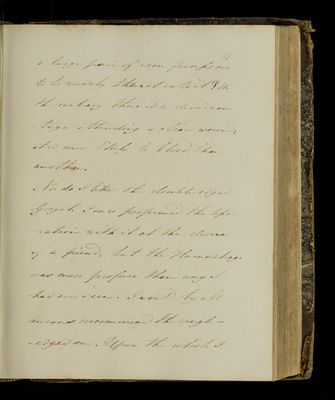 a large pair of iron forceps
to be rudely thrust into it? On
the contrary there is a disadvan
tage attending a clean wound;
it is more likely to bleed than
another.
Nor do I like the double edged
Gorget. I once performed the ope
ration with it at the desire
of a friend, but the Haemorrhage
was more profuse than any I
had ever seen. I would by all
means recommend the single
edged one. Upon the whole I